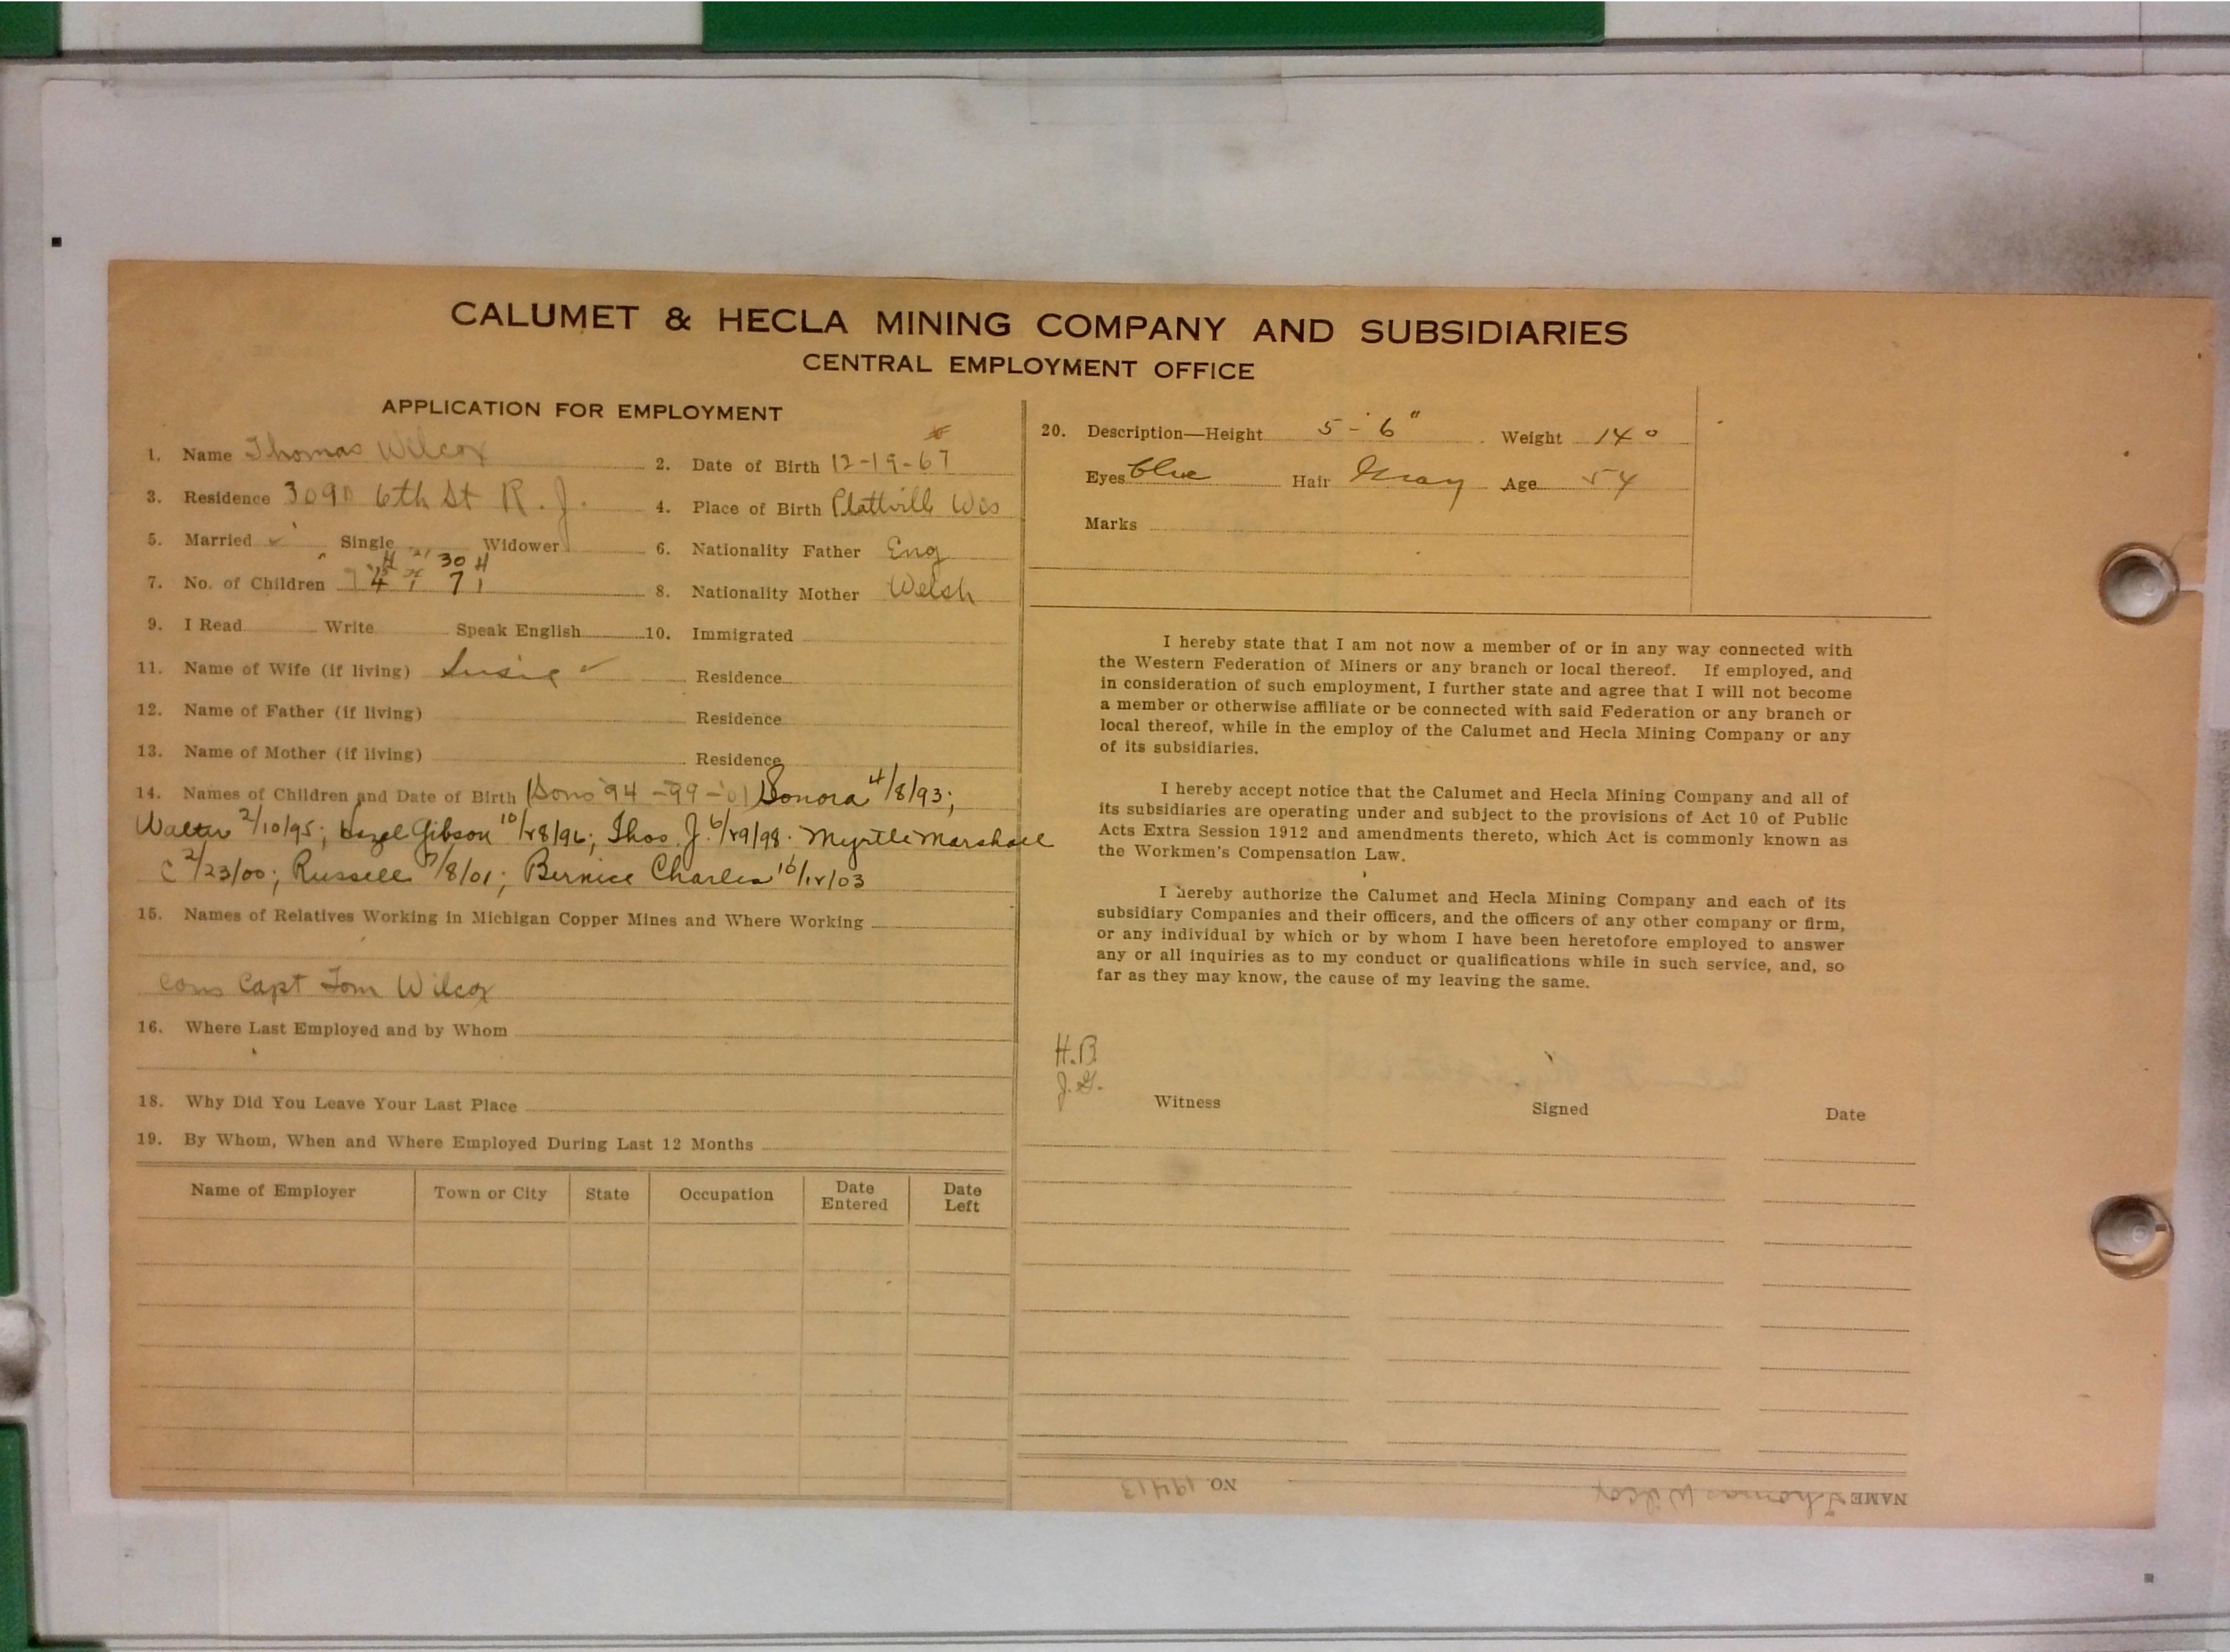 CALUMET & HECLA MINING COMPANY AND SUBSIDIARIES
CENTRAL EMPLOYMENT OFFICE
APPLICATION FOR EMPLOYMENT
1. Name Thomas Wilcox 2. Date of Birth 12-19-67
3. Residence 3090 6th St R. J. 4. Place of Birth Plattvill Wis
5. Married ✓ Single Widower 6. Nationality Father Eng
7. No. of Children 8. Nationality Mother Welsh
9. I Read Write Speak English 10. Immigrated
11. Name of Wife (if living) Susie ✓ Residence
12. Name of Father (if living) Residence
13. Name of Mother (if living) Residence
14. Names of Children and Date of Birth (Sons '94 - 99 - '01) Sonora 4/8/93;
Walter 2/10/95; Hazel Gibson 10/28/96; Thos. J. 6/29/98. Myrtle Marshall
2/23/00; Russell 7/8/01; Bernice Charles 10/12/03
15. Names of Relatives Working in Michigan Copper Mines and Where Working
Capt Tom Wilcox
16. Where Last Employed and by Whom
18. Why Did You Leave Your Last Place
19. By Whom, When and Where Employed During Last 12 Months
Name of Employer Town or City State Occupation Date Entered Date Left
20. Description—Height 5-6" Weight 140
Eyes blue Hair Gray Age 54
Marks
I hereby state that I am not now a member of or in any way connected with
the Western Federation of Miners or any branch or local thereof. If employed, and
in consideration of such employment, I further state and agree that I will not become
a member or otherwise affiliate or be connected with said Federation or any branch or
local thereof, while in the employ of the Calumet and Hecla Mining Company or any
of its subsidiaries.
I hereby accept notice that the Calumet and Hecla Mining Company and all of
its subsidiaries are operating under and subject to the provisions of Act 10 of Public
Acts Extra Session 1912 and amendments thereto, which Act is commonly known as
the Workmen's Compensation Law.
I hereby authorize the Calumet and Hecla Mining Company and each of its
subsidiary Companies and their officers, and the officers of any other company or firm,
or any individual by which or by whom I have been heretofore employed to answer
any or all inquiries as to my conduct or qualifications while in such service, and, so
far as they may know, the cause of my leaving the same.
H.B.
J.G.
Witness Signed Date
NAME Thomas Wilcox NO. 19413